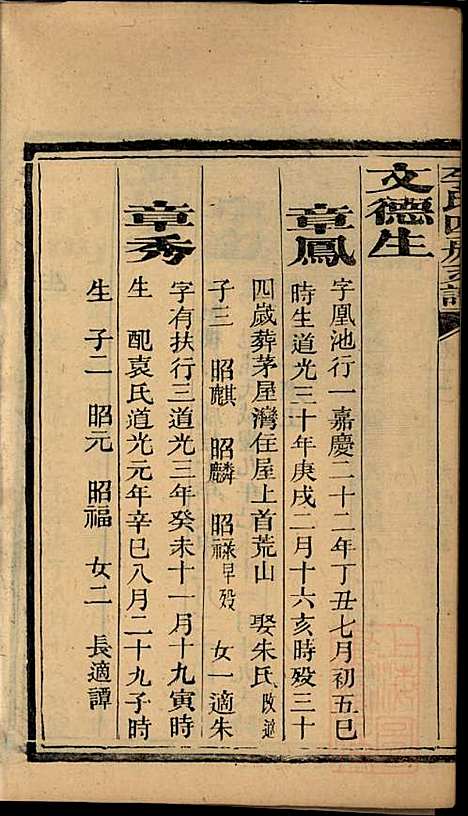 文德生
章鳳
字凰池行一嘉慶二十二年丁丑七月初五巳
時生道光三十年庚戌二月十六亥時殁三十
四歲葬茅屋灣住屋上首荒山 娶朱氏改適
子三 昭麒 昭麟 昭祿早殁 女一適朱
章秀
字有扶行三道光三年癸未十一月十九寅時
生 配袁氏道光元年辛巳八月二十九子時
生 子二 昭元 昭福 女二 長適譚